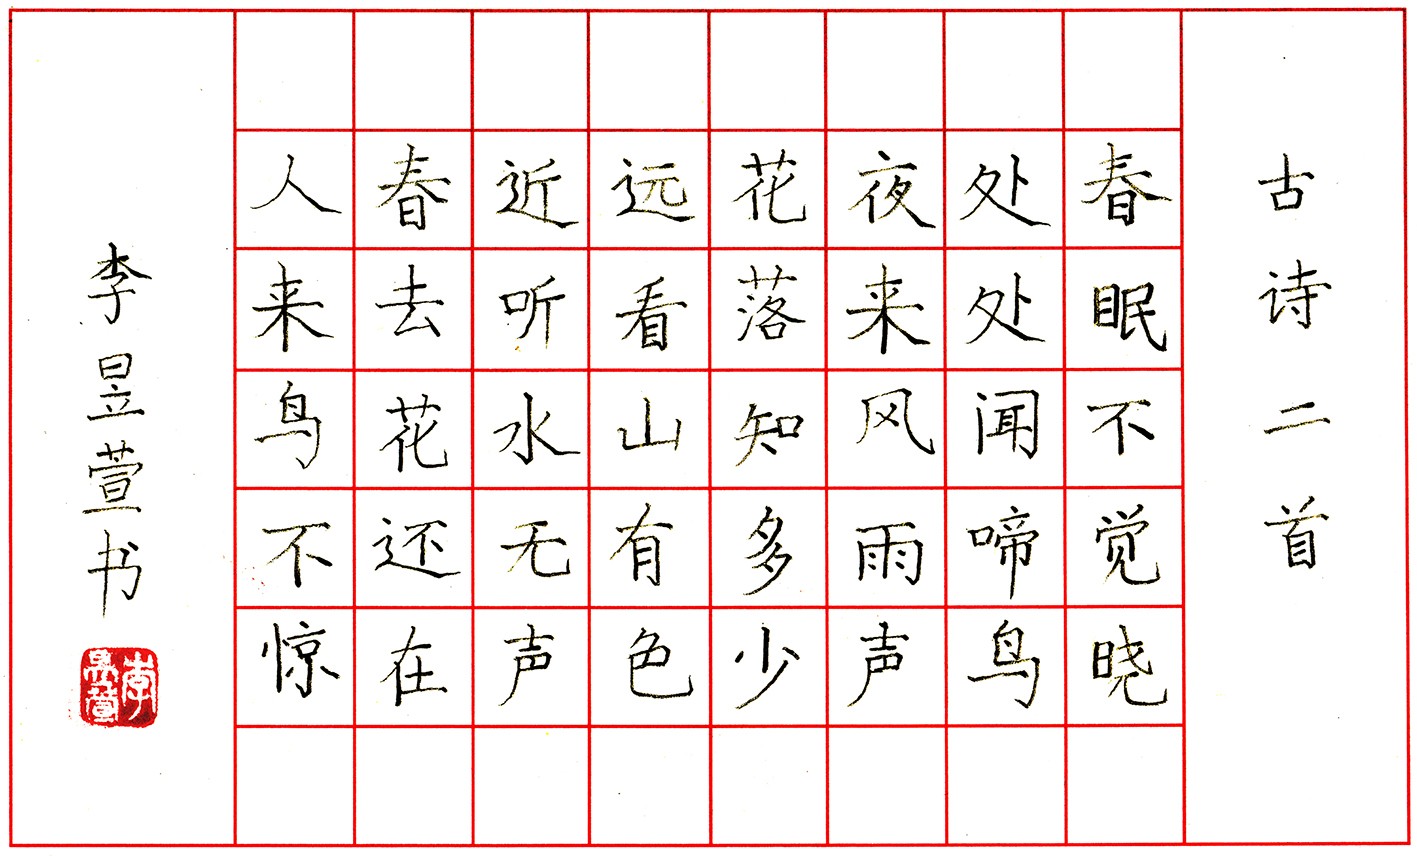 古诗二首
春眠不觉晓
处处闻啼鸟
夜来风雨声
花落知多少
远看山有色
近听水无声
春去花还在
人来鸟不惊
李昱萱书
李昱萱